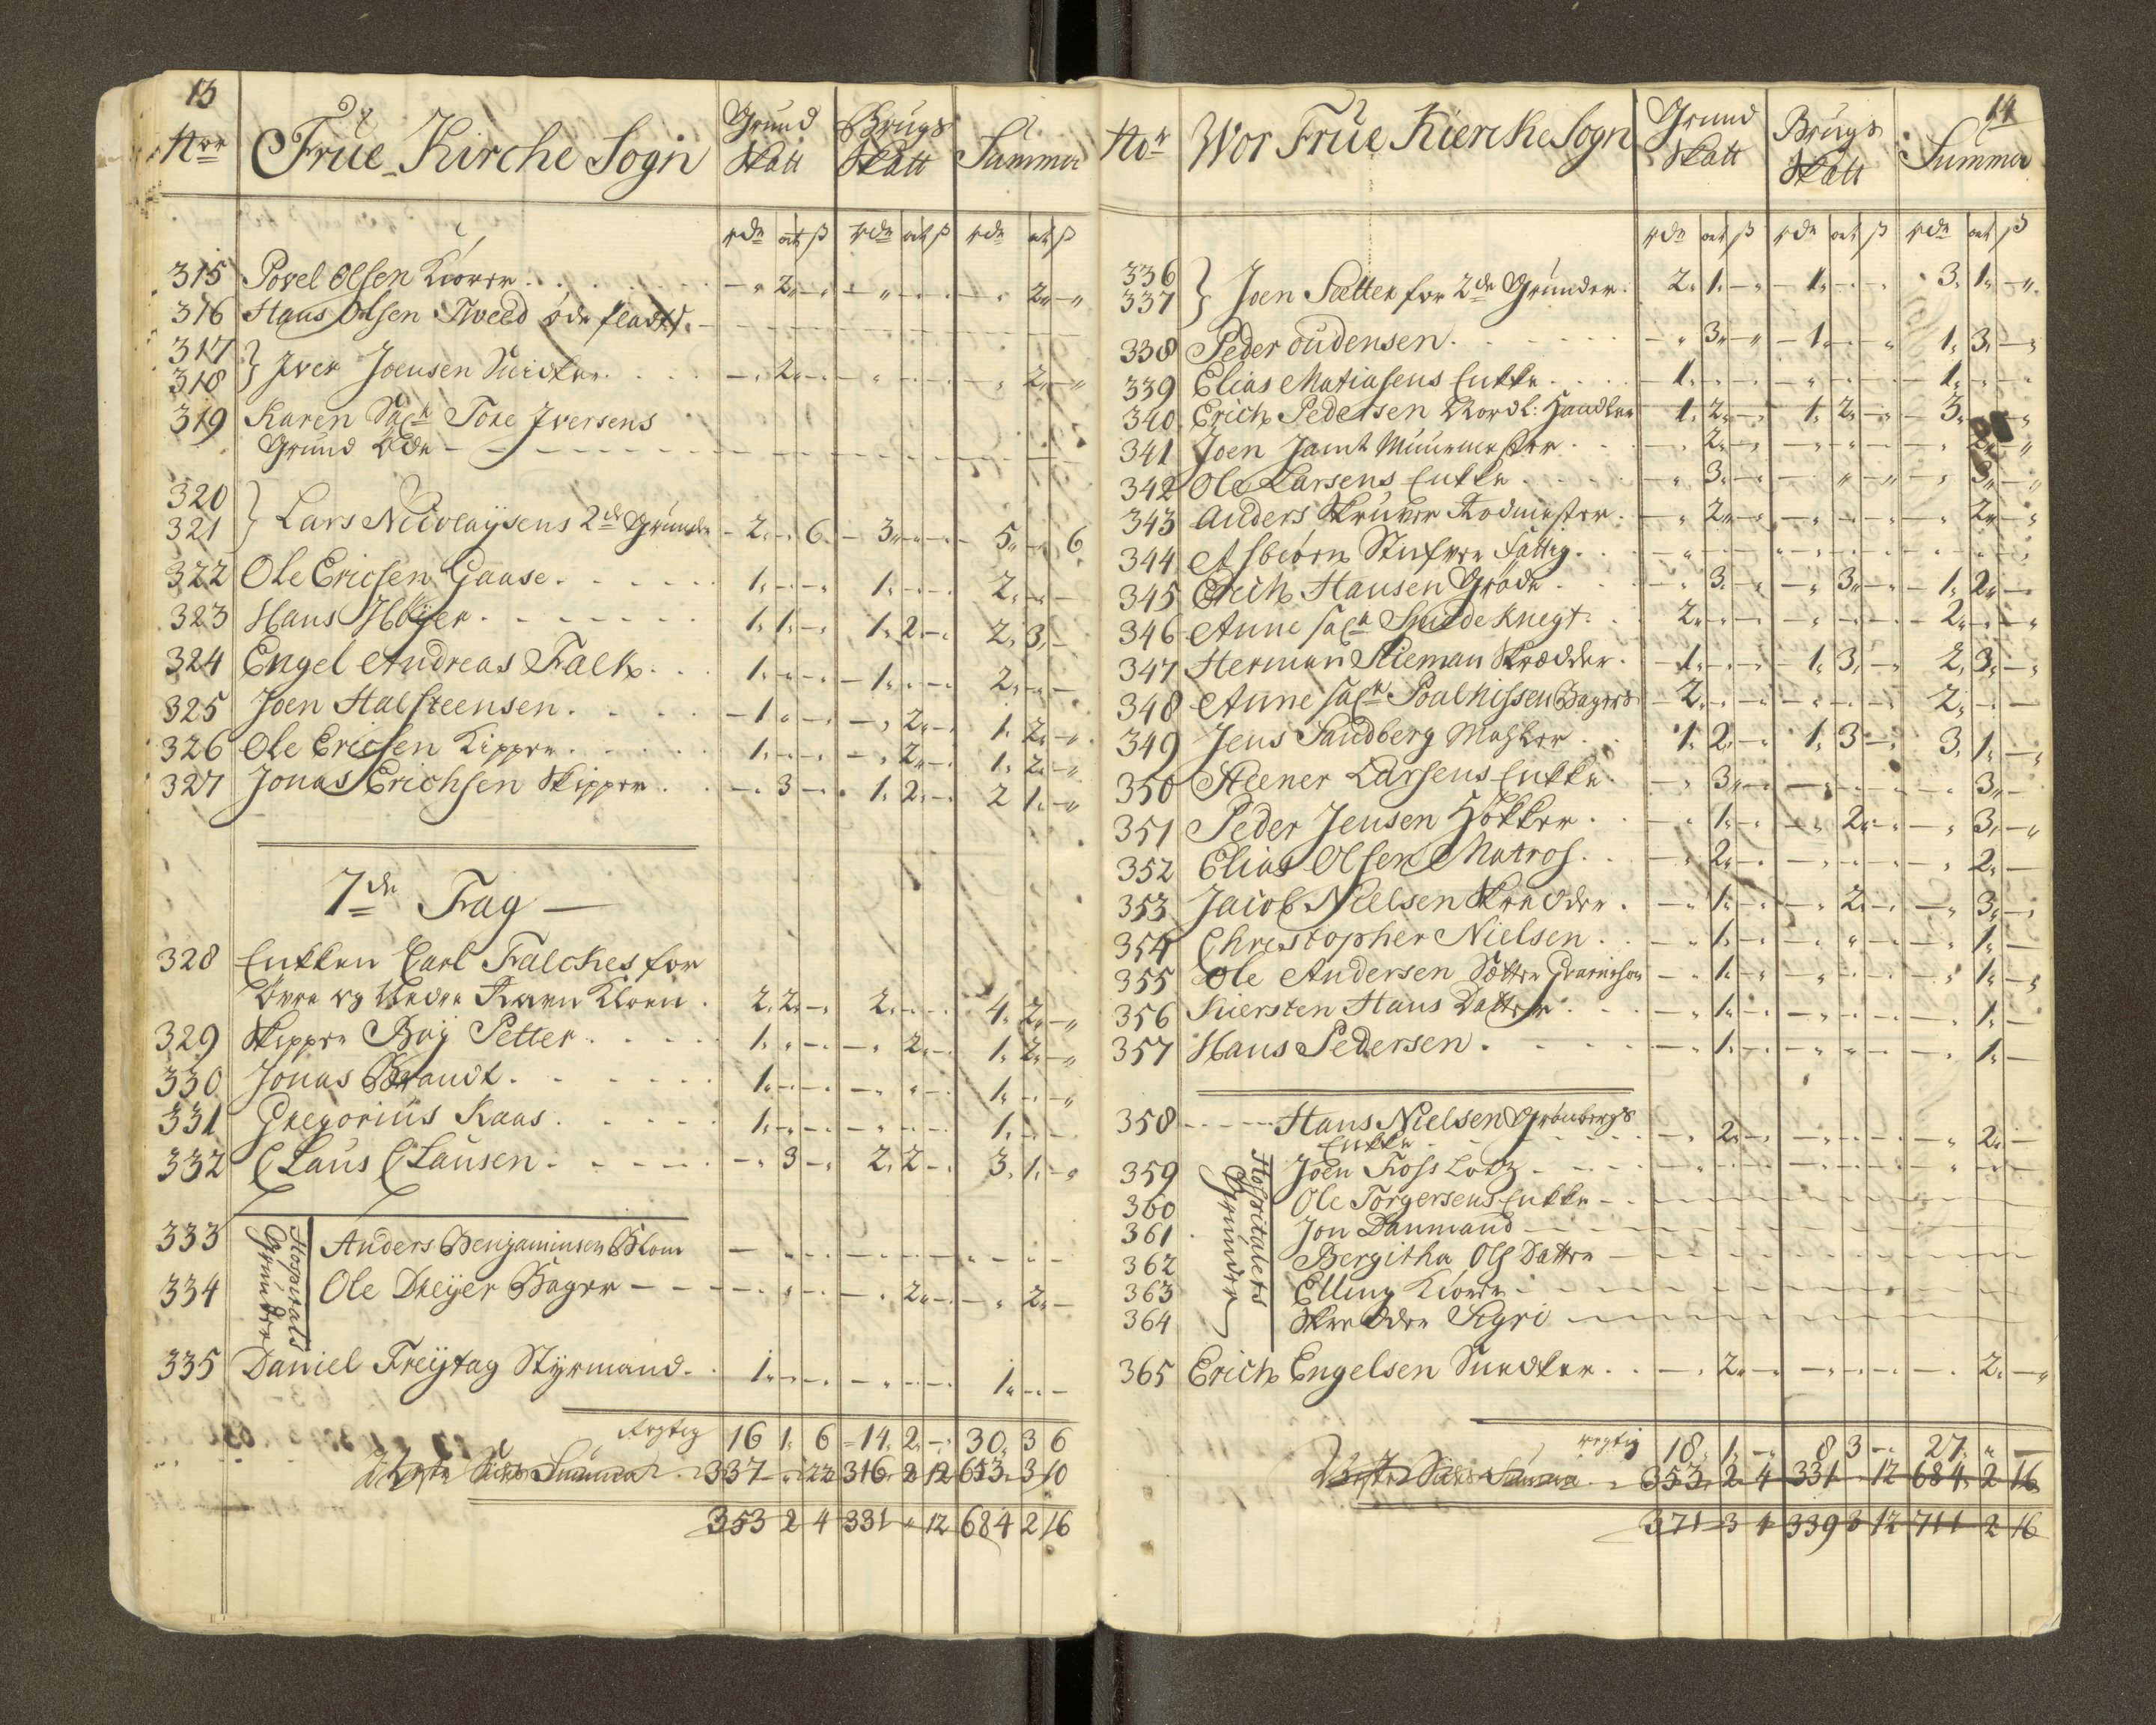 13
Nro Frue Kirche Sogn Grund Skatt Brugs Skatt Summa
rdr ort ß rdr ort ß rdr ort ß
315 Povel Olsen Kiører . . . " 2 " - " - - " 2 " "
316 Hans Olsen Tweed øde
317
318 } Iver Joensen Snidker . . . " 2 - - " - - " 2 "
319 Karen Sal Tore Iversens
Grund Øde - - -
320
321 } Lars Nicolaysens 2de Grunde - 2 " 6 - 3 " - - 5 " 6
322 Ole Ericsen Gaase . . . 1 " - 1 " - 2 " -
323 Hans Høyer . . . 1 1 - 1 2 - 2 3 -
324 Engel Andreas Falck . . . 1 " - 1 " - 2 " -
325 Joen Halsteensen . . . 1 " - " 2 - 1 2 -
326 Ole Ericsen Kipper . . . 1 " - " 2 - 1 2 -
327 Jonas Erichsen Skipper . . " 3 - 1 2 - 2 1 -
7de Fag
328 Enkken Carl Falckes for
Øvre og Nedre Kloen . 2 2 - 2 " - 4 2 -
329 Skipper Boy Petter . . . 1 " - " 2 - 1 2 -
330 Jonas Brandt . . . 1 " - " " - 1 " -
331 Gregorius Kaas . . . 1 " - " " - 1 " -
332 Claus Clausen . . . " 3 - 2 2 - 3 1 -
Hospitals Grunder
333 Anders Benjaminsen Blom - - -
334 Ole Dreyer Bager - - - " 2 - " 2 -
335 Daniel Freytag Styrmand . 1 " - " " - 1 " -
rigtig 16 1 6 14 2 - 30 3 6
Sids Summa 337 " 22 316 2 12 653 3 10
353 2 4 331 " 12 684 2 16
14
No Wor Frue Kiercke Sogn Grund Skatt Brugs Skatt Summa
rdr ort ß rdr ort ß rdr ort ß
336
337 } Joen Sætter for 2de Grunder . 2 1 - 1 " - 3 1 -
338 Peder oudensen . . . " 3 " 1 " " 1 3 -
339 Elias Matiasens Enkke . . . 1 " - " " - 1 " -
340 Erich Pedersen Nordl: Handler 1 2 - 1 2 - 3 " -
341 Joen Jamt Muurmester . . . " 2 - " " - " 2 "
342 Ole Larsens Enkke . . . " 3 - " " - " 3 "
343 Anders Rodmester . " 2 - " " - " 2 -
344 Asbiørn fattig . . .
345 Erich Hansen Grøde . . . " 3 - " 3 - 1 2 -
346 Anne Sal Smideknegt . . 2 " - " " - 2 " -
347 Herman Nieman Skrædder . 1 " - 1 3 - 2 3 -
348 Anne Sal Poalnissen Bagers 2 " - " " - 2 " -
349 Jens Sandberg Mahler . . 1 2 - 1 3 - 3 1 -
350 Steener Larsens Enkke . " 3 - " " - " 3 -
351 Peder Jensen Høkker . . " 1 - " 2 - " 3 -
352 Elias Olsen Matros . . " 2 - " " - " 2 -
353 Jacob Nielsen Skredder . " 1 - " 2 - " 3 -
354 Christopher Nielsen . . " 1 - " " - " 1 -
355 Ole Andersen " 1 - " " - " 1 -
356 Kiersten Hans Datter . . " 1 - " " - " 1 -
357 Hans Pedersen . . . " 1 - " " - " 1 -
358 - - - Hans Nielsen Grønbergs
Enkke . . . " 2 - " " - " 2 -
Hospitalets Grunder
359 Joen Foss - - -
360 Ole Torgersens Enkke - - -
361 Jon Danmand - - -
362 Bergitha Ols Datter - - -
363 Elling Kiører - - -
364 Skredder Sigri - - -
365 Erich Engelsen Snedker . . " 2 - " " - " 2 -
rigtig 18 1 - 8 3 - 27 " -
Sids Summa 353 2 4 331 - 12 684 2 16
371 3 4 339 3 12 711 2 16